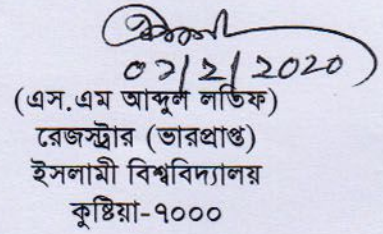 02/2/2020
(এস.এম আব্দুল লতিফ)
রেজিস্ট্রার (ভারপ্রাপ্ত)
ইসলামী বিশ্ববিদ্যালয়
কুষ্টিয়া-৭০০০